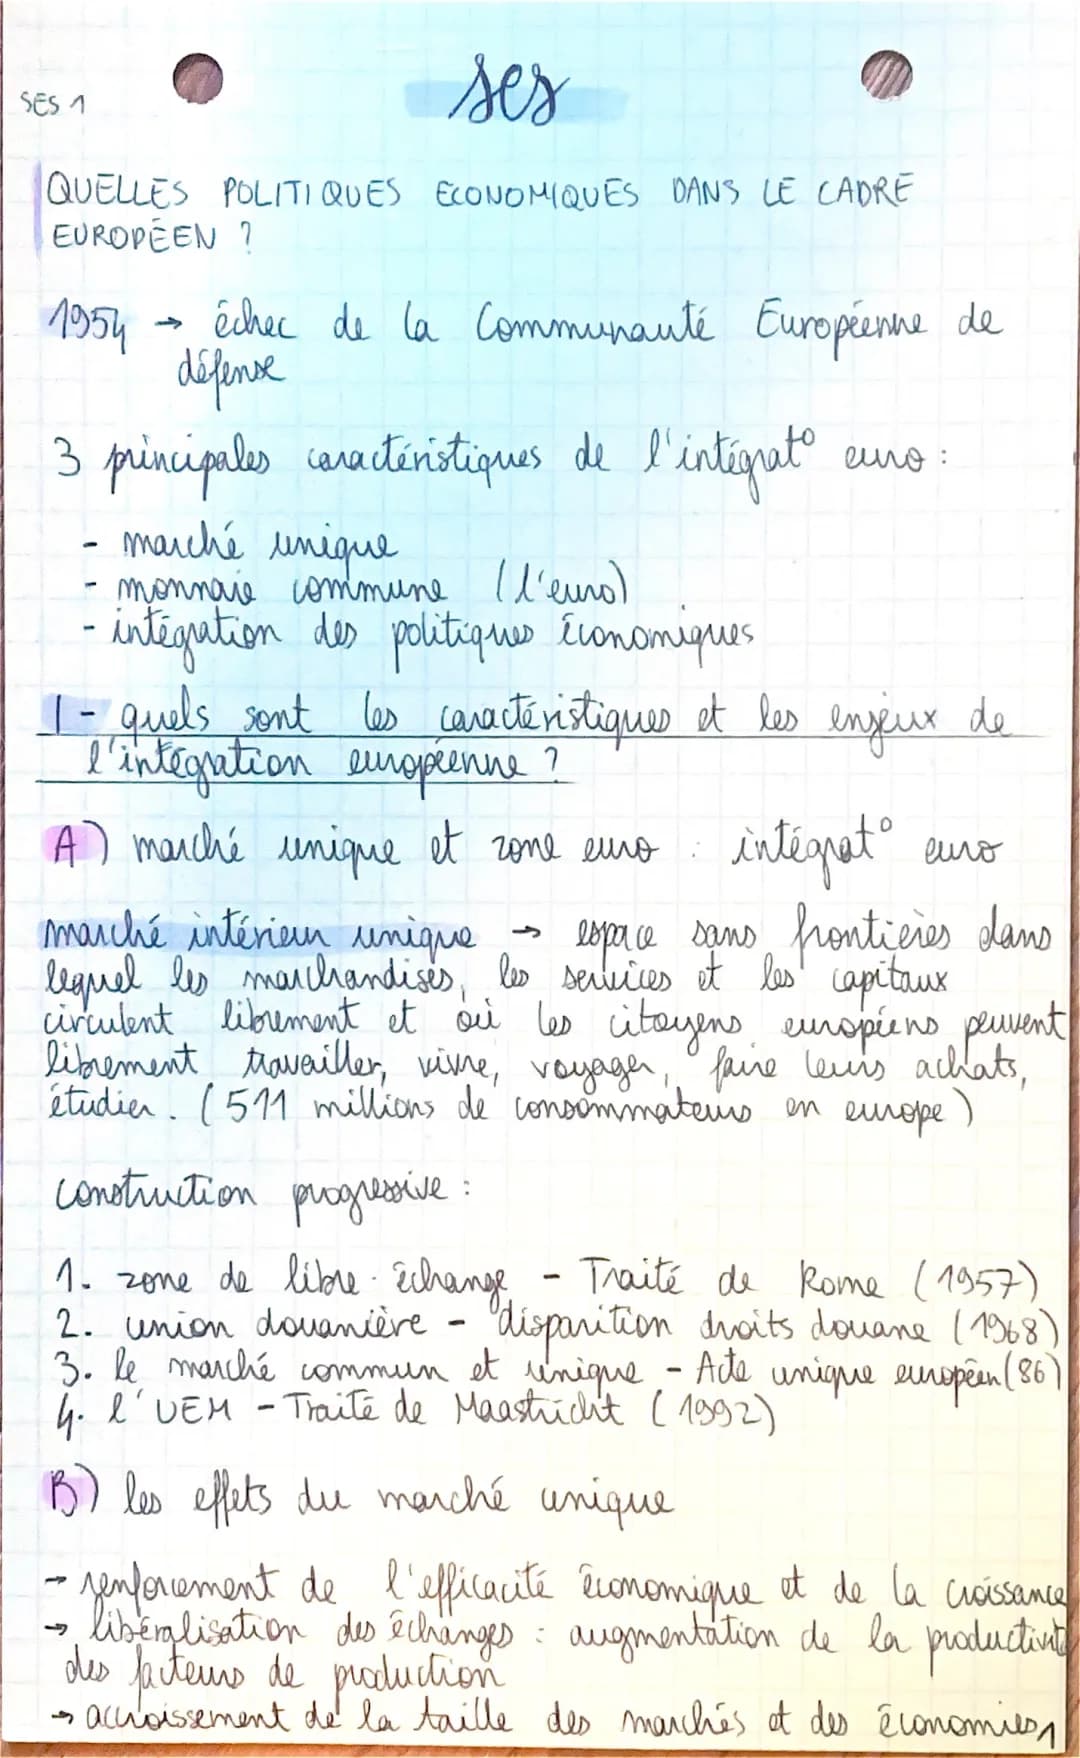 SES 1
ses
QUELLES POLITIQUES ECONOMIQUES DANS LE CADRE
EUROPÉEN ?
1954 → échec de la Communauté Européenne de
défense
3 principales caractéristiques de l'intégrat° euro :
- marché unique
- monnaie commune (l'euro)
- intégration des politiques économiques
I - quels sont les caractéristiques et les enjeux de
l'intégration européenne ?
A) marché unique et zone euro : intégrat° euro
marché intérieur unique → espace sans frontières dans
lequel les marchandises, les services et les capitaux
circulent librement et où les citoyens européens peuvent
librement travailler, vivre, voyager, faire leurs achats,
étudier. (511 millions de consommateurs en europe)
construction progressive :
1. zone de libre-échange - Traité de Rome (1957)
2. union douanière - disparition droits douane (1968)
3. le marché commun et unique - Acte unique européen (86)
4. l'UEM - Traité de Maastricht (1992)
B) les effets du marché unique
→ renforcement de l'efficacité économique et de la croissance
→ libéralisation des échanges : augmentation de la productivité
des facteurs de production
→ accroissement de la taille des marchés et des économies
1